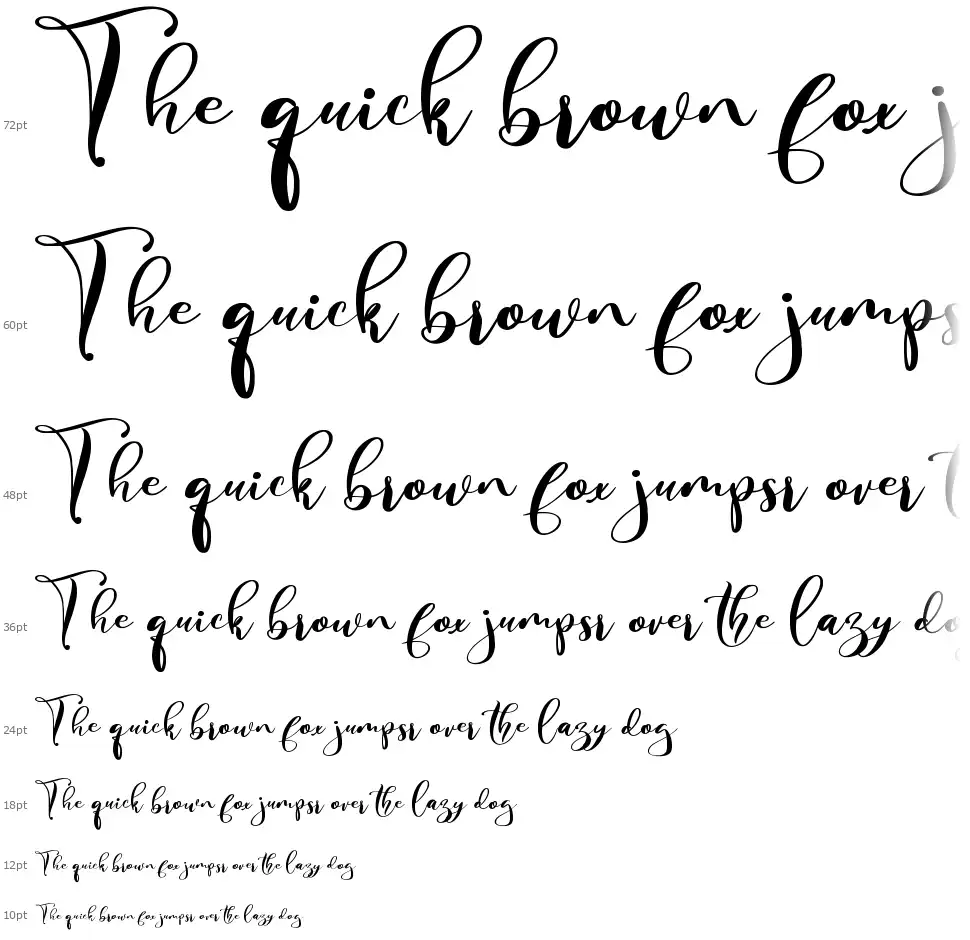 72pt The quick brown fox j
60pt The quick brown fox jumps
48pt The quick brown fox jumpsr over t
36pt The quick brown fox jumpsr over the lazy do
24pt The quick brown fox jumpsr over the lazy dog
18pt The quick brown fox jumpsr over the lazy dog
12pt The quick brown fox jumpsr over the lazy dog
10pt The quick brown fox jumpsr over the lazy dog